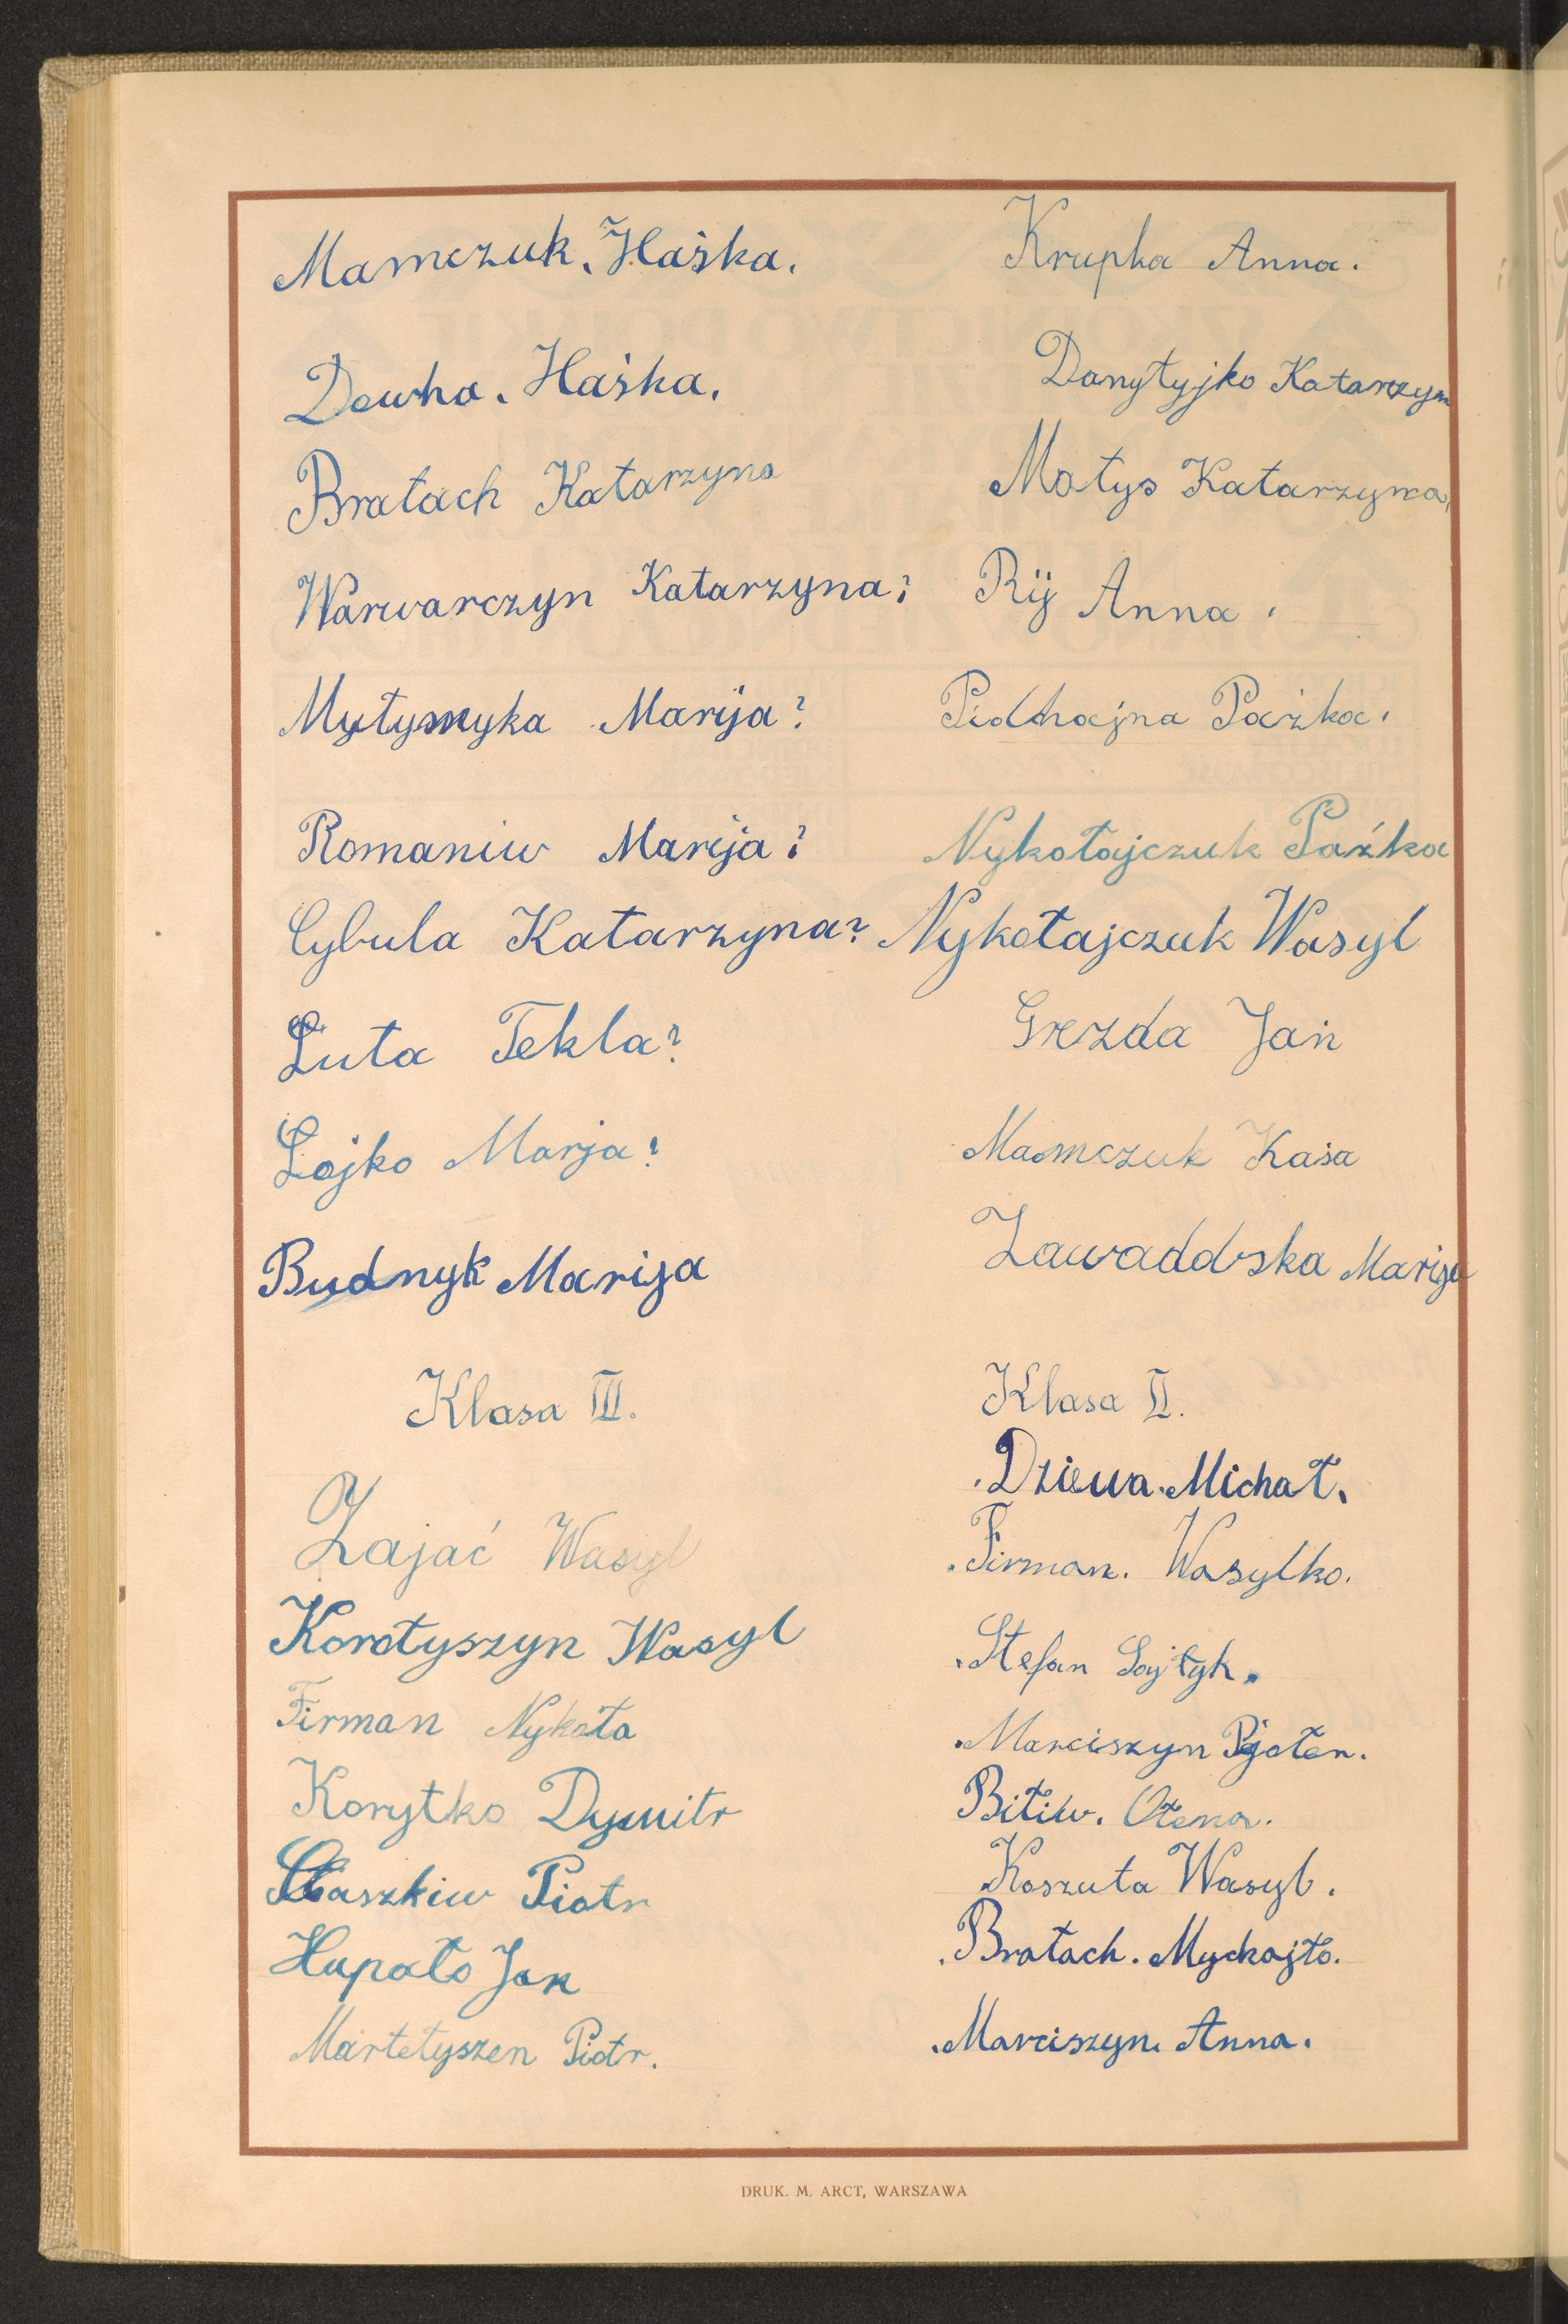 Mamczuk. Haśka.
Dewha. Haśka.
Brałach Katarzyna
Warwarczyn Katarzyna?
Myłymyka Marija?
Romaniw Marija?
Cybula Katarzyna?
Luta Tekla?
Lojko Marja?
Budnyk Marija
Klasa III.
Zajać Wasyl
Korotyszyn Wasyl
Firman Nykoła
Korytko Dymitr
Staszkiw Piotr
Hupało Jan
Martetyszen Piotr.
Krupka Anna.
Danyłyjko Katarzyn
Matys Katarzyna,
Rij Anna.
Pidhajna Paźka.
Nykołajczuk Paźka
Nykołajczuk Wasyl
Grezda Jan
Mamczuk Kaśa
Zawaddska Marija
Klasa II.
Dziewa. Michał.
Firman. Wasylko.
Stefan Sajłyk.
Marciszyn Pjoter.
Bitiw. Ołena.
Koszuta Wasyl.
Brałach. Myckajło.
Marciszyn. Anna.
DRUK. M. ARCT, WARSZAWA